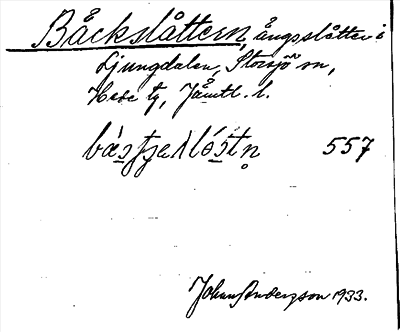 Bäckslåttern, ängsslåtter i
Ljungdalen, Storsjö sn,
Hede tg, Jämtl. l.
557
Johan Anderzson 1933.